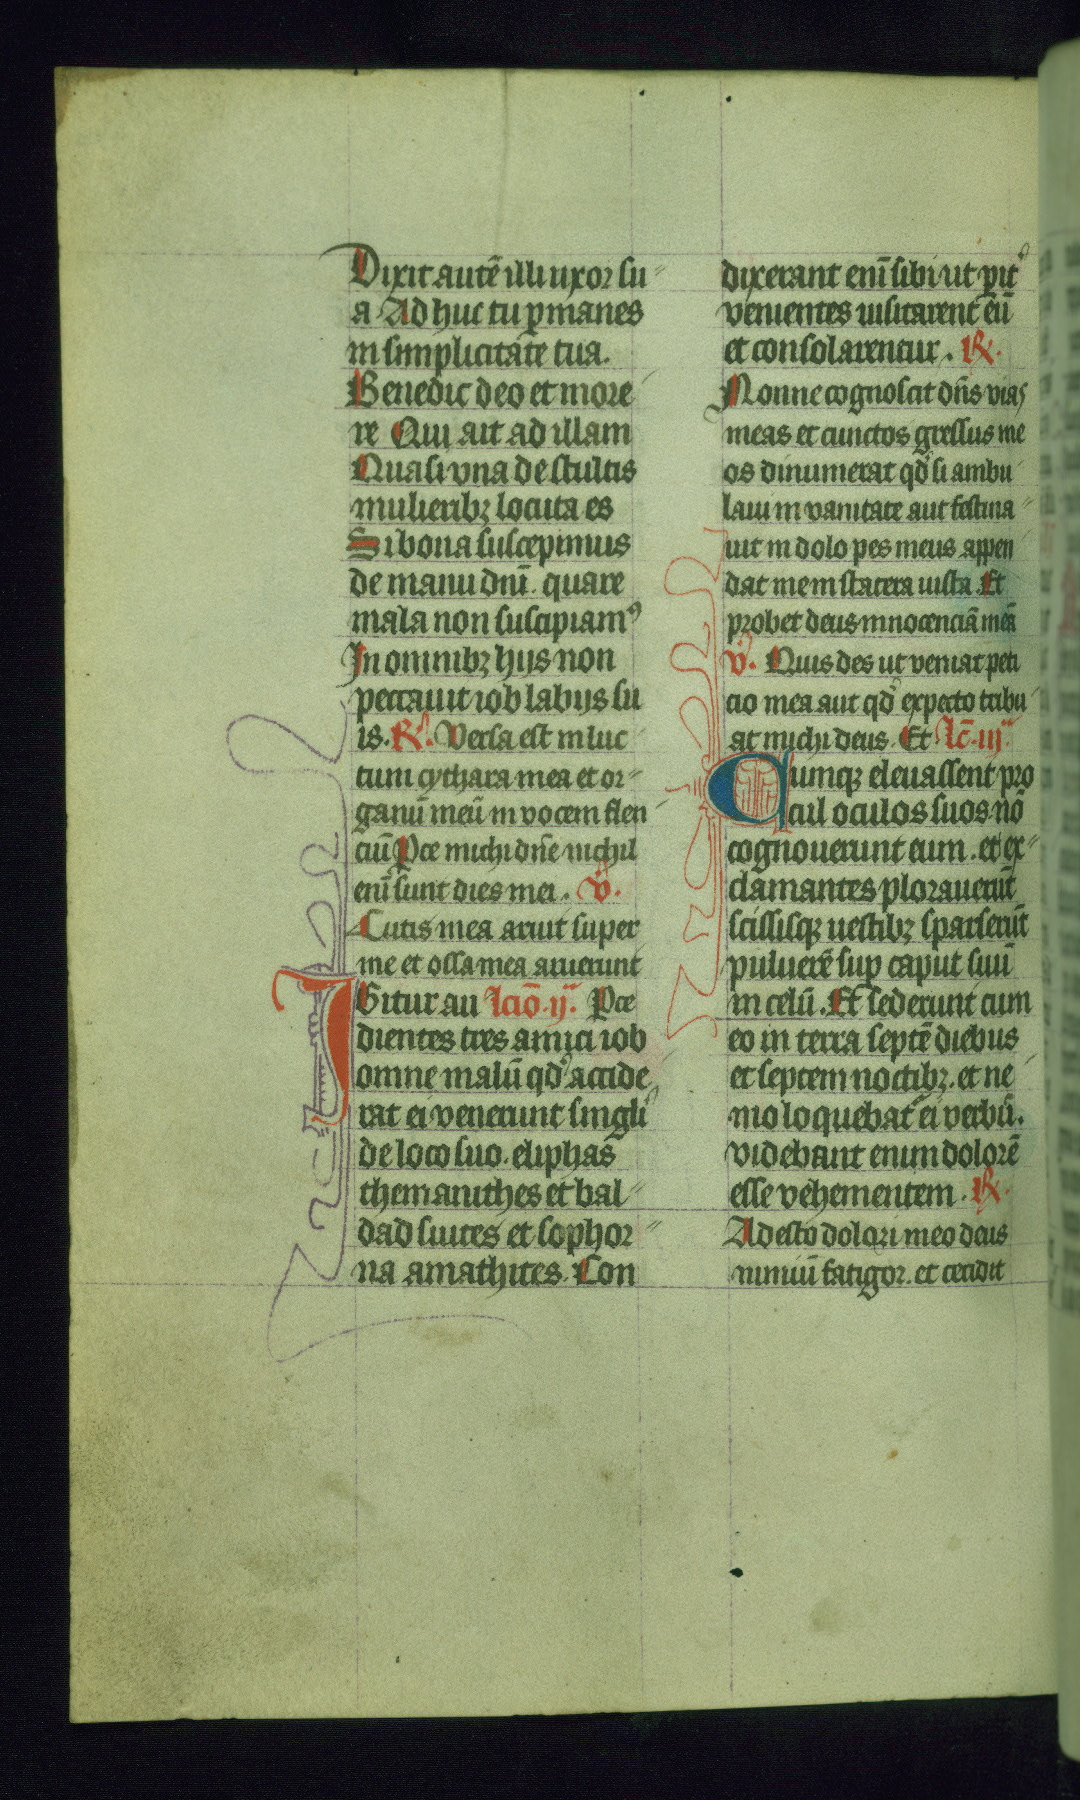 Dixit autē illi uxor su
a Ad huc tu ꝑmanes
in simplicitate tua.
Benedic deo et more
re Qui ait ad illam
Quasi vna de stultis
mulieribꝫ locuta es
Si bona suscepimus
de manu dnī. quare
mala non suscipiamꝰ
In omnibꝫ hijs non
peccauit iob labijs su
is. R̸. Versa est in luc
tum cythara mea et or
ganū meū in vocem flen
ciū Pce michi dn̄e nichil
enī sunt dies mei. v̸.
Cutis mea aruit super
me et ossa mea aruerunt
IGitur au lcīo.ij. Pce
dientes tres amici iob
omne malū qd̓ accide
rat ei venerunt singli̓
de loco suo. eliphas
themanithes et bal
dad suites et sophor
na amathites. Con
dixerant enī sibi ut pit̓
venientes uisitarent eū
et consolarentur. R̸.
Nonne cognoscit dn̄s vias
meas et cunctos gressus me
os dinumerat qd̓ si ambu
laui in vanitate aut festina
uit in dolo pes meus appen
dat me in statera iusta. Et
probet deus innocenciā meā
v̸. Quis des ut veniat peti
cio mea aut qd̓ expecto tribu
at michi deus. Et lc̄.iij.
Cumqꝫ eleuassent pro
cul oculos suos nō
cognouerunt eum. et ex
clamantes plorauerūt
scissisqꝫ uestibꝫ sparserūt
puluerē sup caput suū
in celū. Et sederunt cum
eo in terra septē diebus
et septem noctibꝫ. et ne
mo loquebat̄ ei verbū.
videbant enim dolorē
esse vehementem. R̸.
Adesto dolori meo deus
nimiū fatigor. et cecidit